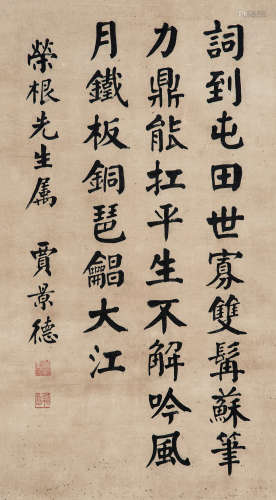 詞到屯田世寡雙髯蘇筆
力鼎能扛平生不解吟風
月鐵板銅琶齆大江
榮根先生属 賈景德